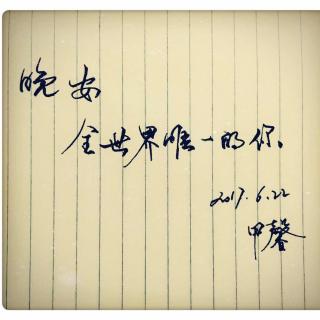 晚安
全世界唯一的你。
2017.6.22
甲馨